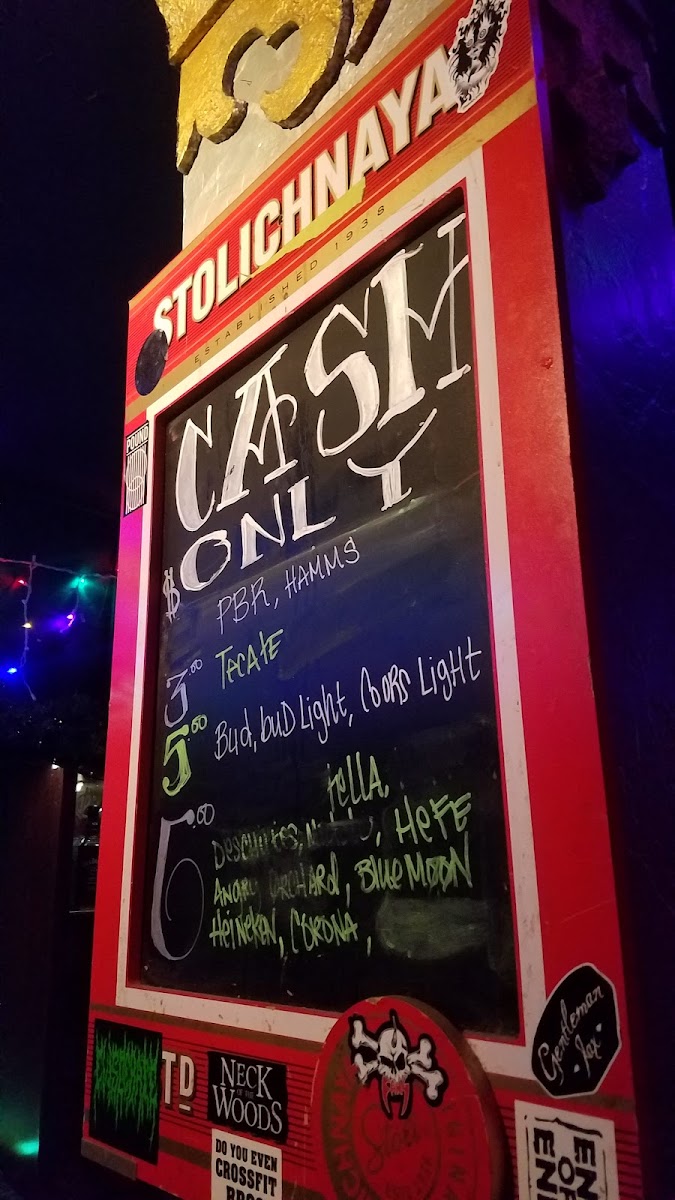 STOLICHNAYA
ESTABLISHED 1938
POUND
CASH
$ONLY
PBR, HAMMS
3.00 TECATE
5.00 Bud, buD Light, COORS Light
6.00
TELLA,
DESCHUTES, HEFE
ANGRY ORCHARD, BLUE MOON
HEINEKEN, CORONA,
Gentleman
Jox
TD
NECK
OF THE
WOODS
DO YOU EVEN
CROSSFIT